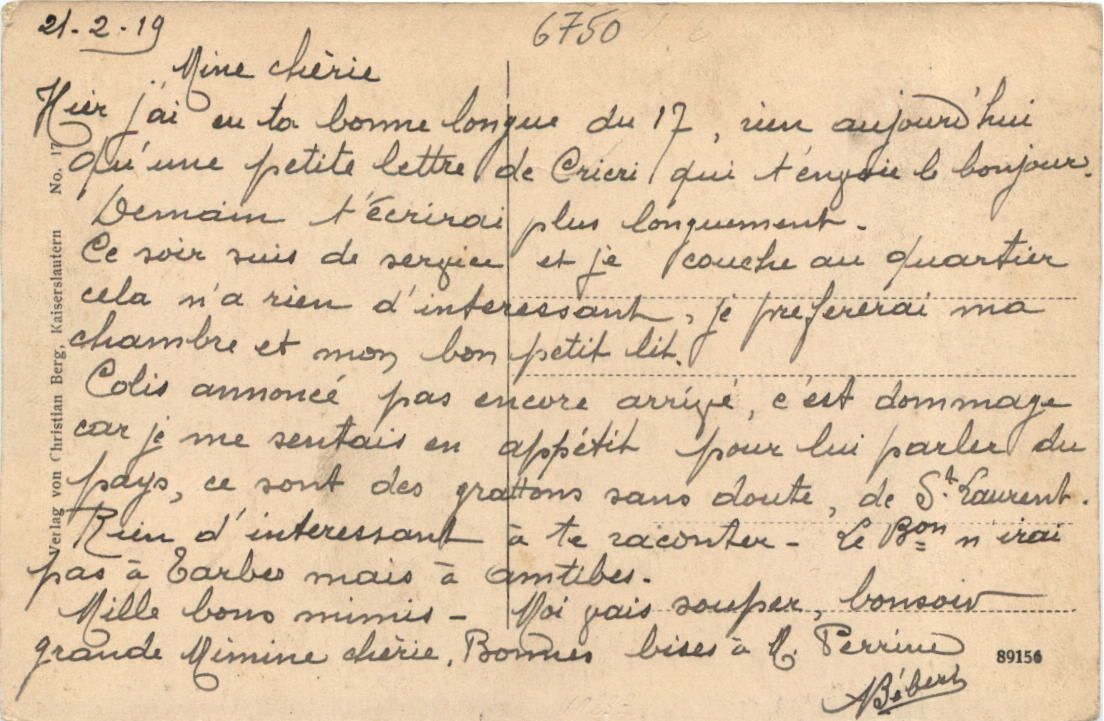 21-2-19
6750
Mine chèrie
Hier j'ai eu ta bonne longue du 17, rien aujourd'hui
qu'une petite lettre de Cricri qui t'envoie le bonjour.
Demain t'écrirai plus longuement.
Ce soir suis de service et je couche au quartier
cela n'a rien d'interessant, je prefererai ma
chambre et mon bon petit lit.
Colis annoncé pas encore arrivé, c'est dommage
car je me sentais en appétit pour lui parler du
pays, ce sont des grattons sans doute, de St Laurent.
Rien d'interessant à te raconter - Le Bon n'irai
pas à Tarbes mais à Antibes.
Mille bons mimis - Moi vais souper, bonsoir
grande Mimine chèrie, Bonnes bises à M. Perrine
Bébert
89156
Verlag von Christian Berg, Kaiserslautern No. 17